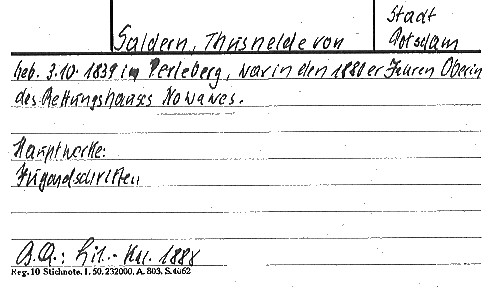 Stadt
Saldern, Thusnelde von Potsdam
Geb. 3.10.1839 in Perleberg, war in den 1880er Jahren Oberin
des Rettungshauses Nowawes.
Hauptwerke:
Jugendschriften
B.Q.: Lit.-Kal. 1888
Reg. 10 Stichnote. I. 50. 232000. A. 803. S. 4062